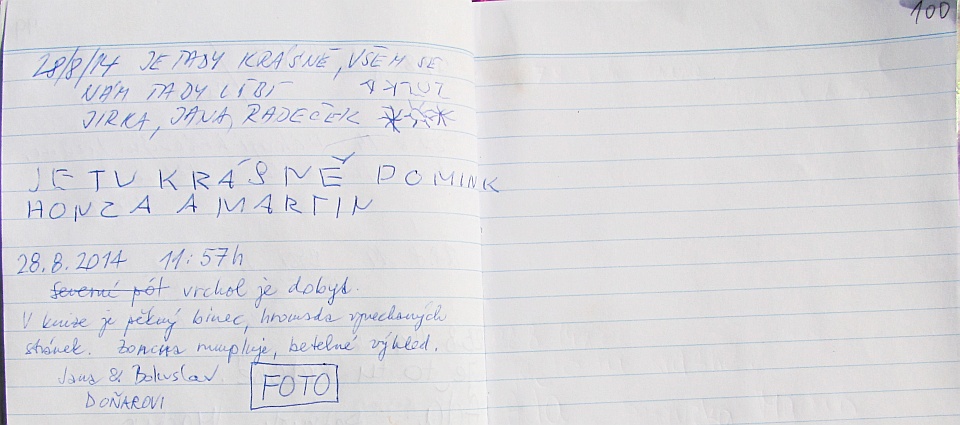 100
28/8/14 JE TADY KRÁSNĚ, VŠEM SE
NÁM TADY LÍBÍ
JIRKA, JANA, RADEČEK
JE TU KRÁSNĚ DOMINK
HONZA A MARTIN
28.8.2014 11:57h
severní pól vrchol je dobyt.
V knize je pěkný binec, hromada vynechaných
stránek. betelné výhled.
Jana & Bohuslav
DOŇAROVI
FOTO